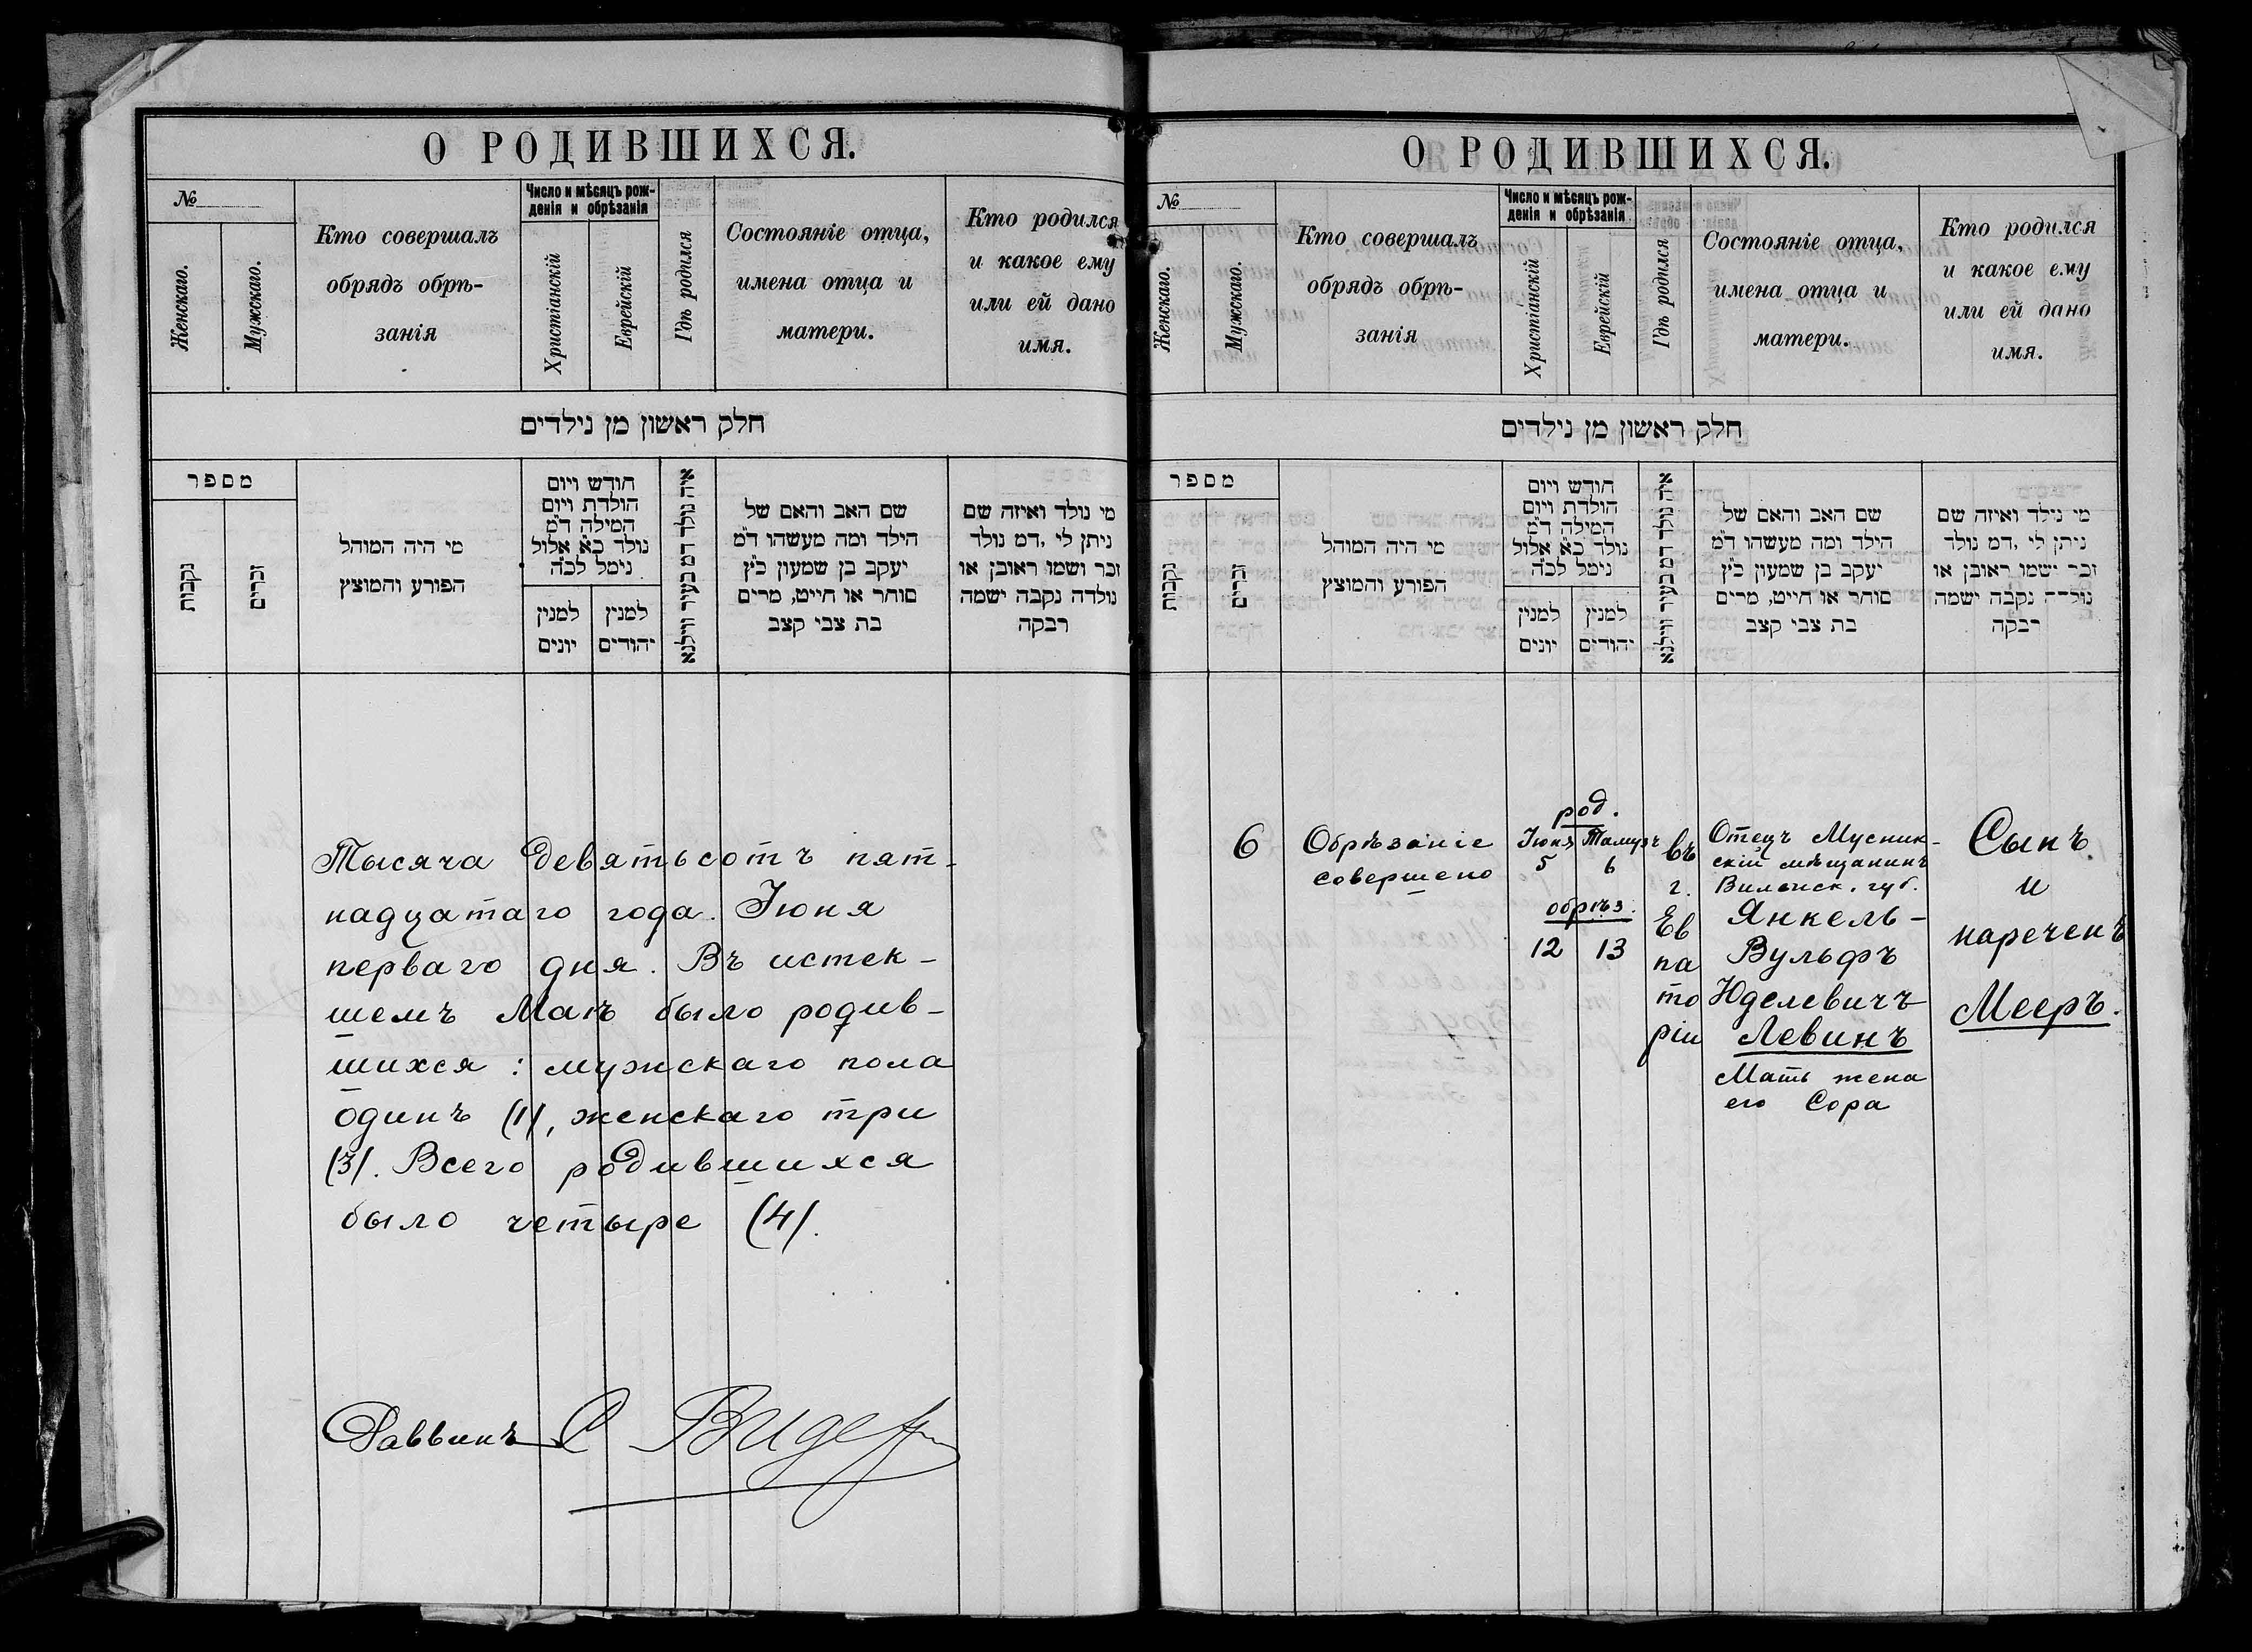 О РОДИВШИХСЯ.
№
Женскаго.
Мужскаго.
Кто совершалъ
обрядъ обрѣ-
занія
Число и мѣсяцъ рож-
денія и обрѣзанія
Христіанскій
Еврейскій
Гдѣ родился
Состояніе отца,
имена отца и
матери.
Кто родился
и какое ему
или ей дано
имя.
חלק ראשון מן נילדים
מספר
נקבות
זכרים
מי היה המוהל
הפורע והמוצץ
חודש ויום
הולדת ויום
המילה ד״מ
נולד כ״א אלול
נימל לכ״ה
למנין
יונים
למנין
יהודים
איה נולד דמ בעיר ווילנא
שם האב והאם של
הילד ומה מעשהו ד״מ
יעקב בן שמעון כ״ץ
סוחר או חייט, מרים
בת צבי קצב
מי נולד ואיזה שם
ניתן לי ,דמ נולד
זכר ושמו ראובן או
נולדה נקבה ישמה
רבקה
Тысяча девятьсотъ пят-
надцатаго года. Іюня
перваго дня. Въ истек-
шемъ Маѣ было родив-
шихся : мужскаго пола
одинъ (1), женскаго три
(3). Всего родившихся
было четыре (4).
Раввинъ
О РОДИВШИХСЯ.
№
Женскаго.
Мужскаго.
Кто совершалъ
обрядъ обрѣ-
занія
Число и мѣсяцъ рож-
денія и обрѣзанія
Христіанскій
Еврейскій
Гдѣ родился
Состояніе отца,
имена отца и
матери.
Кто родился
и какое ему
или ей дано
имя.
חלק ראשון מן נילדים
מספר
נקבות
זכרים
מי היה המוהל
הפורע והמוצץ
חודש ויום
הולדת ויום
המילה ד״מ
נולד כ״א אלול
נימל לכ״ה
למנין
יונים
למנין
יהודים
איה נולד דמ בעיר ווילנא
שם האב והאם של
הילד ומה מעשהו ד״מ
יעקב בן שמעון כ״ץ
סוחר או חייט, מרים
בת צבי קצב
מי נילד ואיזה שם
ניתן לי ,דמ נולד
זכר ישמו ראובן או
נולדה נקבה ישמה
רבקה
6
Обрѣзаніе
совершено
род.
Іюня Тамузъ
5 6
обрѣз.
12 13
въ
г.
Ев
па
то
ріи
Отецъ Мусник-
скій мѣщанинъ
Виленск. губ.
Янкель-
Вульфъ
Юделевичъ
Левинъ
Мать жена
его Сора
Сынъ
и
нареченъ
Мееръ.